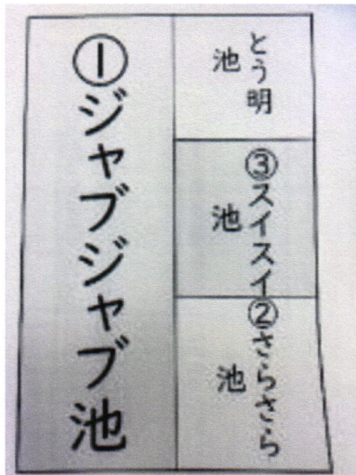 とう明
池
③スイスイ
池
②さらさら
池
①ジャブジャブ池